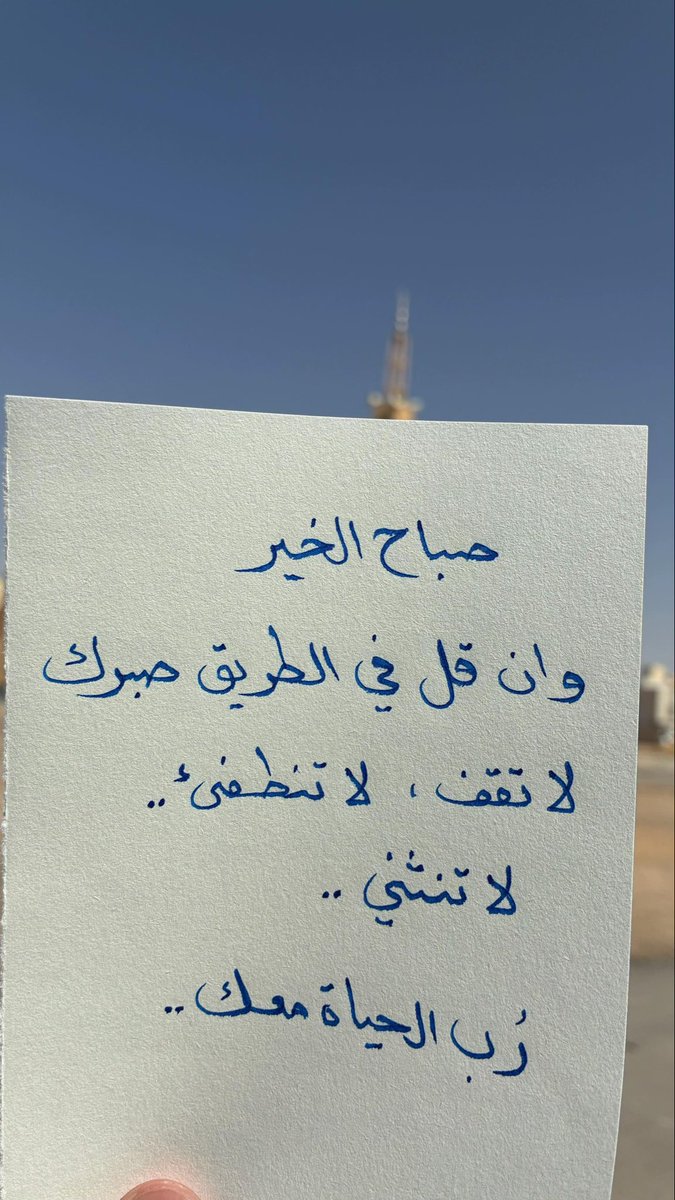 صباح الخير
وان قل في الطريق صبرك
لا تقف ، لا تنطفئ ..
لا تنثني ..
رُب الحياة معك ..